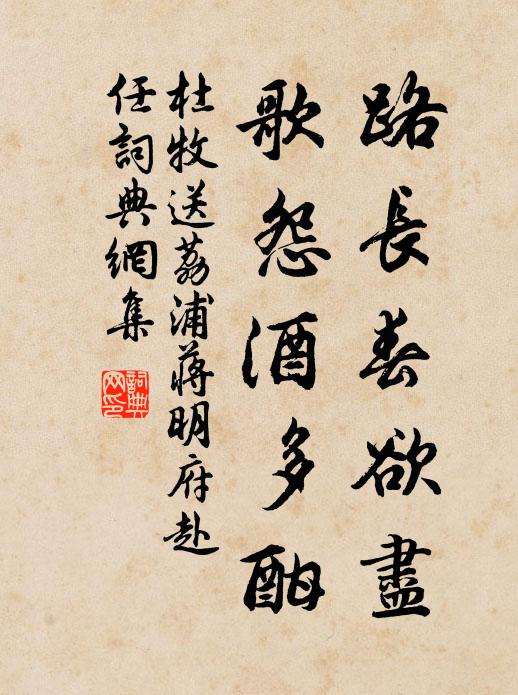 路長春欲盡
歌怨酒多酣
杜牧送荔浦蔣明府赴
任詞典網集
詞典
网印